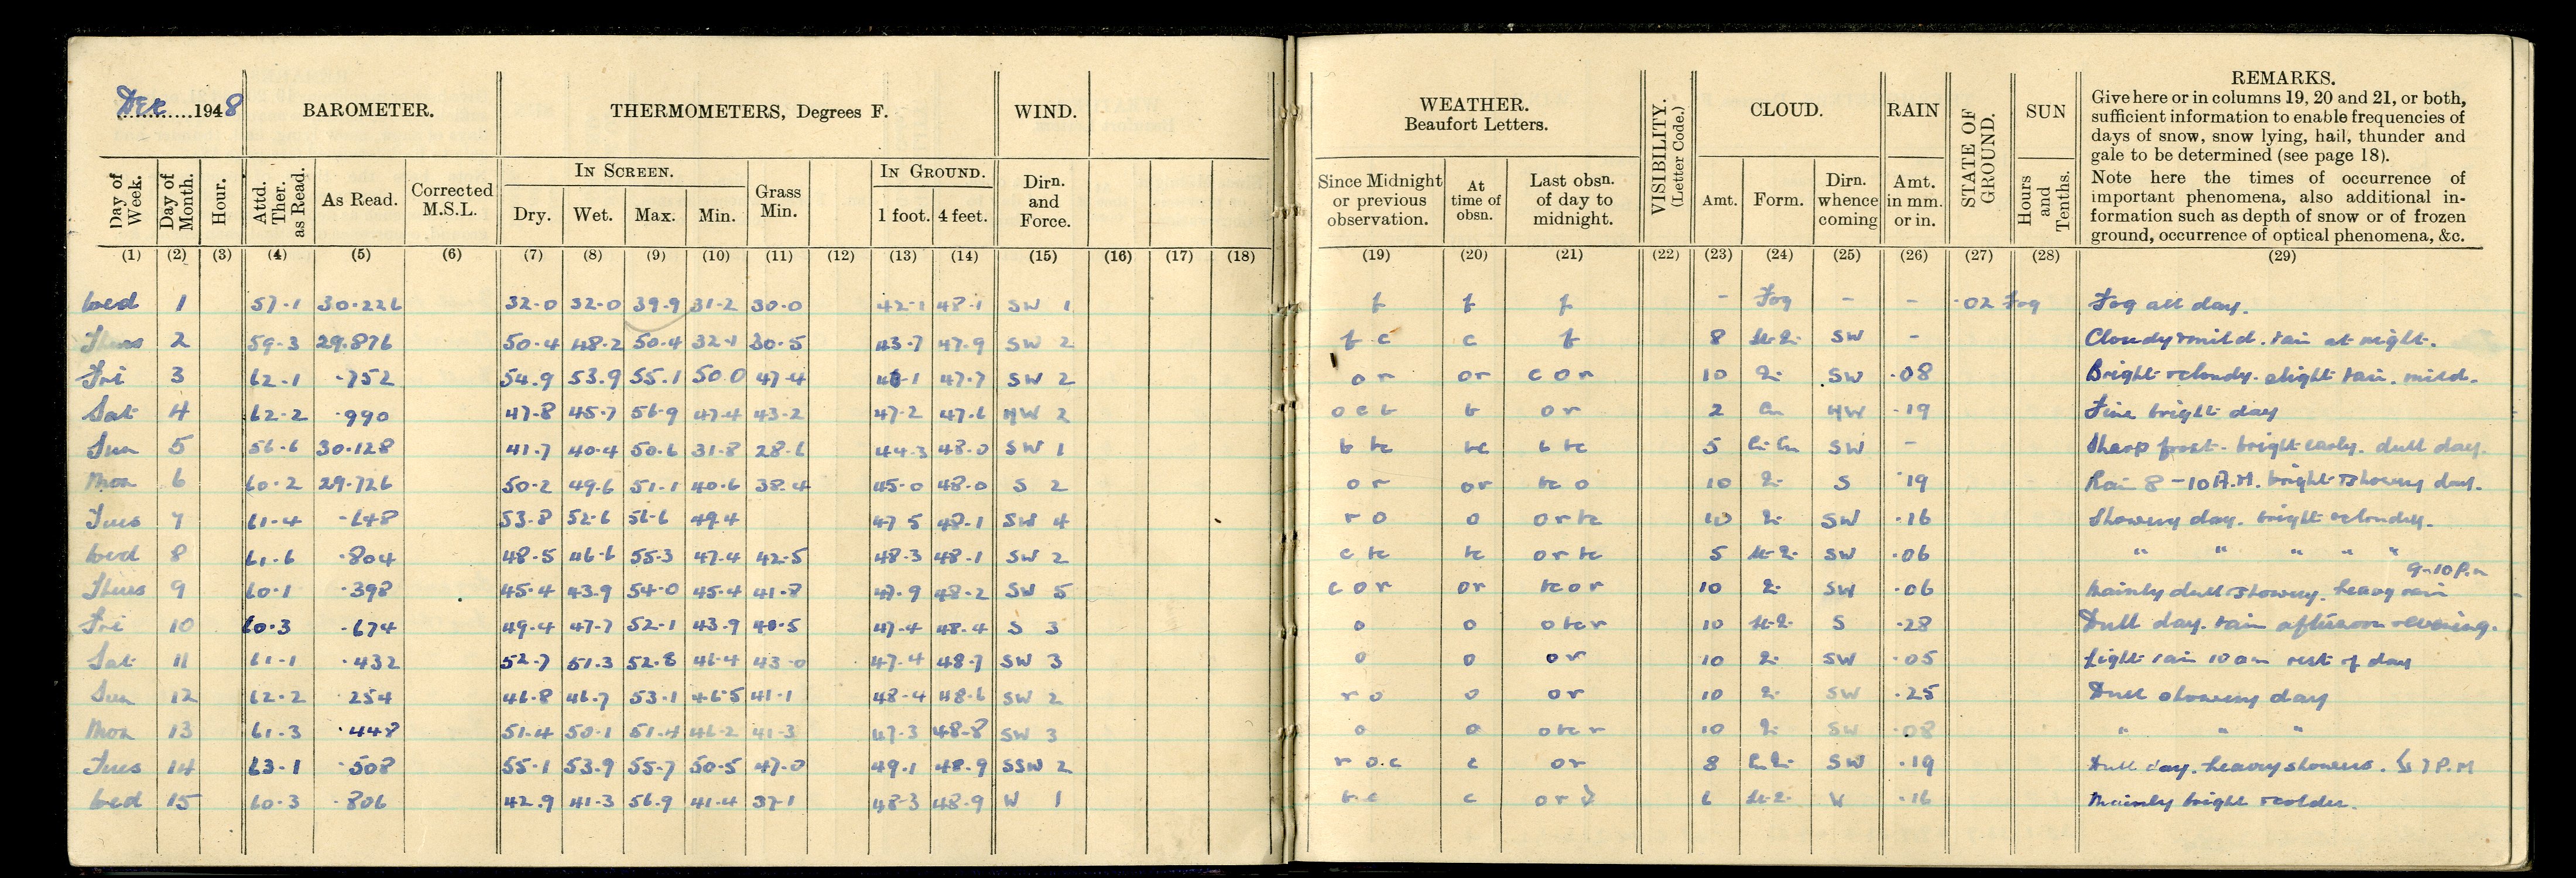 Dec 1948 BAROMETER. THERMOMETERS, Degrees F. WIND.
Day of Week. Day of Month. Hour. Attd. Ther. as Read. As Read. Corrected M.S.L. IN SCREEN. Dry. Wet. Max. Min. Grass Min. IN GROUND. 1 foot. 4 feet. Dirn. and Force.
(1) (2) (3) (4) (5) (6) (7) (8) (9) (10) (11) (12) (13) (14) (15) (16) (17) (18)
Wed 1 57.1 30.226 32.0 32.0 39.9 31.2 30.0 42.1 48.1 SW 1
Thurs 2 59.3 29.876 50.4 48.2 50.4 32.1 30.5 43.7 47.9 SW 2
Fri 3 62.1 .752 54.9 53.9 55.1 50.0 47.4 46.1 47.7 SW 2
Sat 4 62.2 .990 47.8 45.7 56.9 47.4 43.2 47.2 47.6 NW 2
Sun 5 56.6 30.128 41.7 40.4 50.6 31.8 28.6 44.3 48.0 SW 1
Mon 6 60.2 29.726 50.2 49.6 51.1 40.6 38.4 45.0 48.0 S 2
Tues 7 61.4 .648 53.8 52.6 56.6 49.4 47.5 48.1 SW 4
Wed 8 61.6 .804 48.5 46.6 55.3 47.4 42.5 48.3 48.1 SW 2
Thurs 9 60.1 .398 45.4 43.9 54.0 45.4 41.8 47.9 48.2 SW 5
Fri 10 60.3 .674 49.4 47.7 52.1 43.9 40.5 47.4 48.4 S 3
Sat 11 61.1 .432 52.7 51.3 52.8 46.4 43.0 47.4 48.7 SW 3
Sun 12 62.2 .254 46.8 46.7 53.1 46.5 41.1 48.4 48.6 SW 2
Mon 13 61.3 .448 51.4 50.1 51.4 46.2 41.3 47.3 48.8 SW 3
Tues 14 63.1 .508 55.1 53.9 55.7 50.5 47.0 49.1 48.9 SSW 2
Wed 15 60.3 .806 42.9 41.3 56.9 41.4 37.1 48.3 48.9 W 1
WEATHER. Beaufort Letters. VISIBILITY. (Letter Code.) CLOUD. RAIN STATE OF GROUND. SUN REMARKS.
Give here or in columns 19, 20 and 21, or both,
sufficient information to enable frequencies of
days of snow, snow lying, hail, thunder and
gale to be determined (see page 18).
Note here the times of occurrence of
important phenomena, also additional in-
formation such as depth of snow or of frozen
ground, occurrence of optical phenomena, &c.
Since Midnight or previous observation. At time of obsn. Last obsn. of day to midnight. Amt. Form. Dirn. whence coming Amt. in mm. or in. Hours and Tenths.
(19) (20) (21) (22) (23) (24) (25) (26) (27) (28) (29)
f f f - Fog - - .02 Fog Fog all day.
f c c f 8 SW - Cloudy & mild. rain at night.
o r or c o r 10 SW .08 Bright & cloudy. slight rain. mild.
o c b b o r 2 Cu NW .19 Fine bright day
b bc bc b bc 5 Ci-Cu SW - Sharp frost. bright early. dull day.
o r or bc o 10 S .19 Rain 8-10 A.M. bright & showery day.
r o o o r bc 10 SW .16 Showery day. bright & cloudy.
c bc bc o r bc 5 SW .06 " " " " "
c o r or bc o r 10 SW .06 Mainly dull & showery. heavy rain 9-10 P.m
o o o bc r 10 S .28 Dull day. rain afternoon & evening.
o o o r 10 SW .05 Light rain 10 am rest of day
r o o o r 10 SW .25 Dull showery day
o o o bc r 10 SW .08 " " "
r o.c c o r 8 SW .19 Dull day. heavy showers. 7 P.M
b c c o r 6 W .16 Mainly bright & colder.